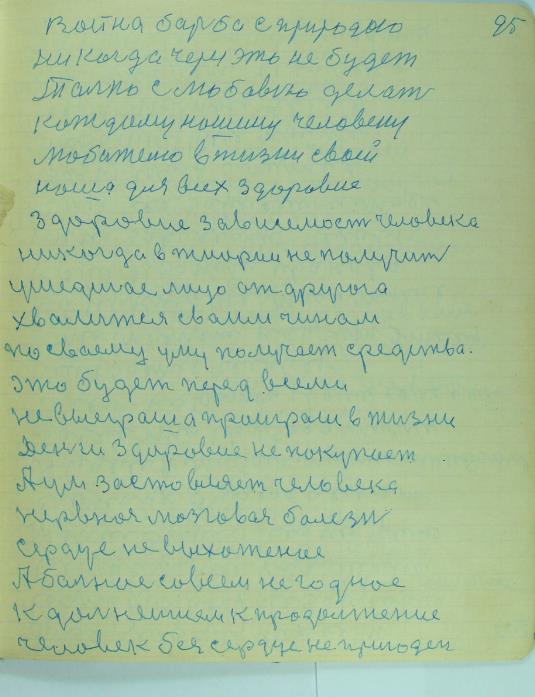 95
Война барба с природаю
никогда чериз это не будет
Толко с любавию делат
каждаму нашиму человеку
любажено в жизни своей
наша для всех здоровие
Здоровие зависемост человека
никогда в тиории не получит
ушедшае лицо от другога
хвалитея сваим чинам
по сваему уму получает средства.
это будет перед всеми
не выеграш а проиграш в жизни
Денги здоровие не покупает
А ум заставляет человека
нервная мозговая балезн
сердце не выхажение
А балное совсем не годное
к далнейшем к продолжение
человек без сердце не пригоден